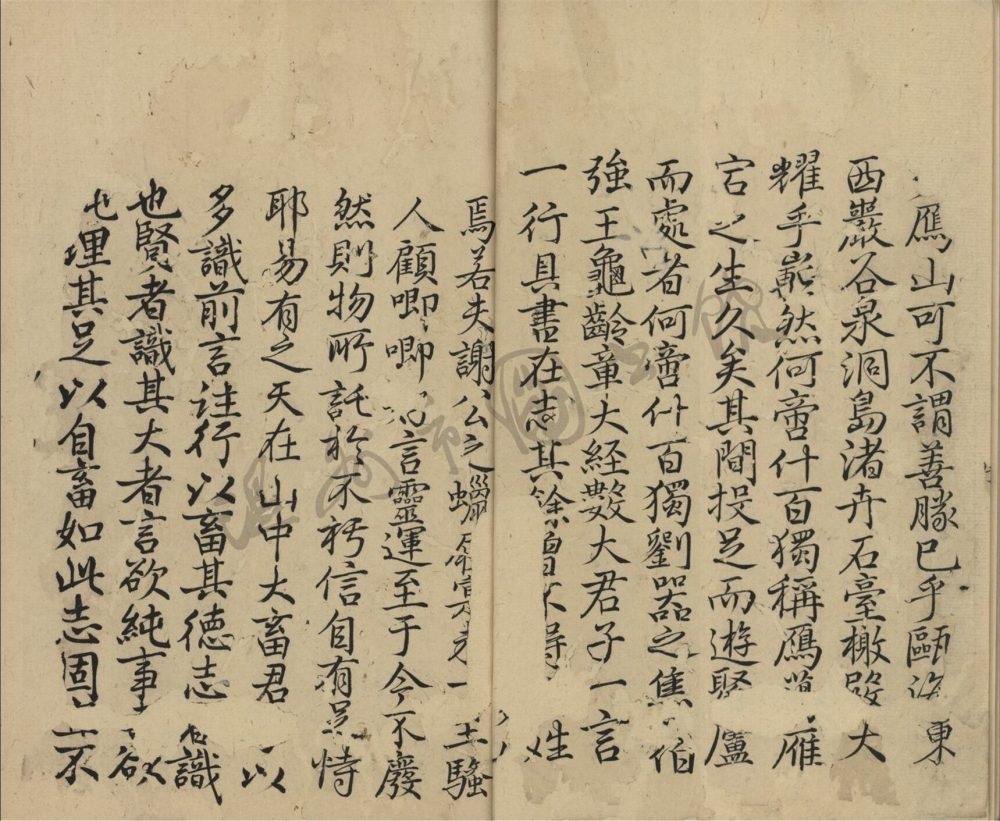 鴈山可不謂善勝已乎甌 東
西巖谷泉洞島渚卉石臺橄 大
耀乎嶄然何啻什百獨稱鴈 雁
宕之生久矣其間投足而遊 廬
而處者何啻什百獨劉器之焦伯
強王龜齡章大經數大君子一言
一行具書在志其餘曾不得 姓
焉若夫謝公之蠟 王騷
人顧唧唧 言靈運至于今不廢
然則物所託於不朽信自有足恃
耶易有之天在山中大畜君 以
多識前言往行以畜其德志 識
也賢者識其大者言欲純事 欲
也理其足以自畜如此志固